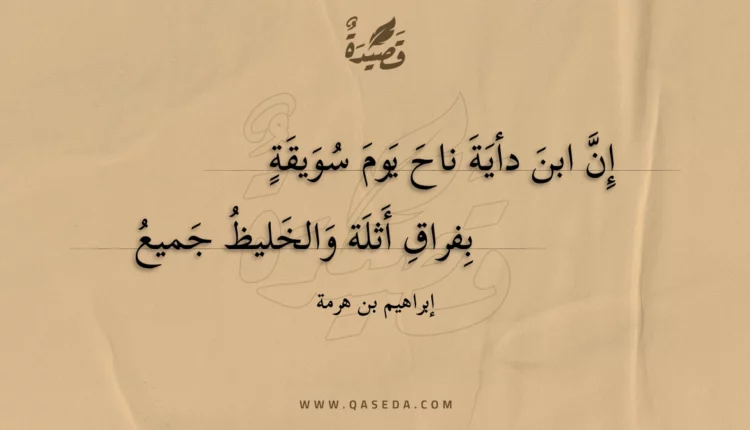 قَصِيْدَةٌ
إِنَّ ابنَ دأيَةَ ناحَ يَومَ سُوَيقَةٍ
بِفراقِ أَثلَة وَالخَليظُ جَميعُ
إبراهيم بن هرمة
WWW.QASEDA.COM